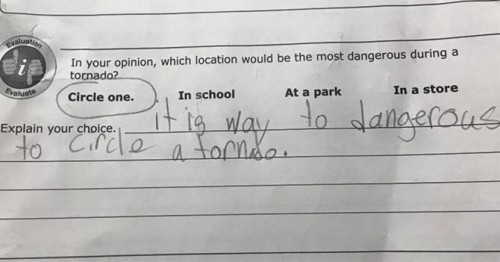 Evaluation
dip
Evaluate
In your opinion, which location would be the most dangerous during a
tornado?
Circle one. In school At a park In a store
Explain your choice. It is way to dangerous
to circle a tornado.